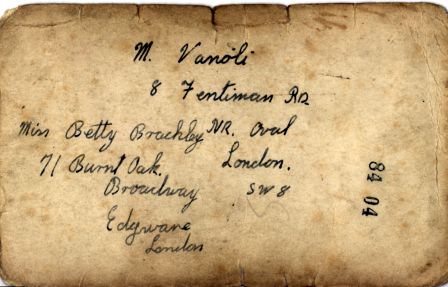 M. Vanoli
8 Fentiman RD
NR. Oval
London.
SW8
Miss Betty Brackley
71 Burnt Oak.
Broadway
Edgware
London
84 04